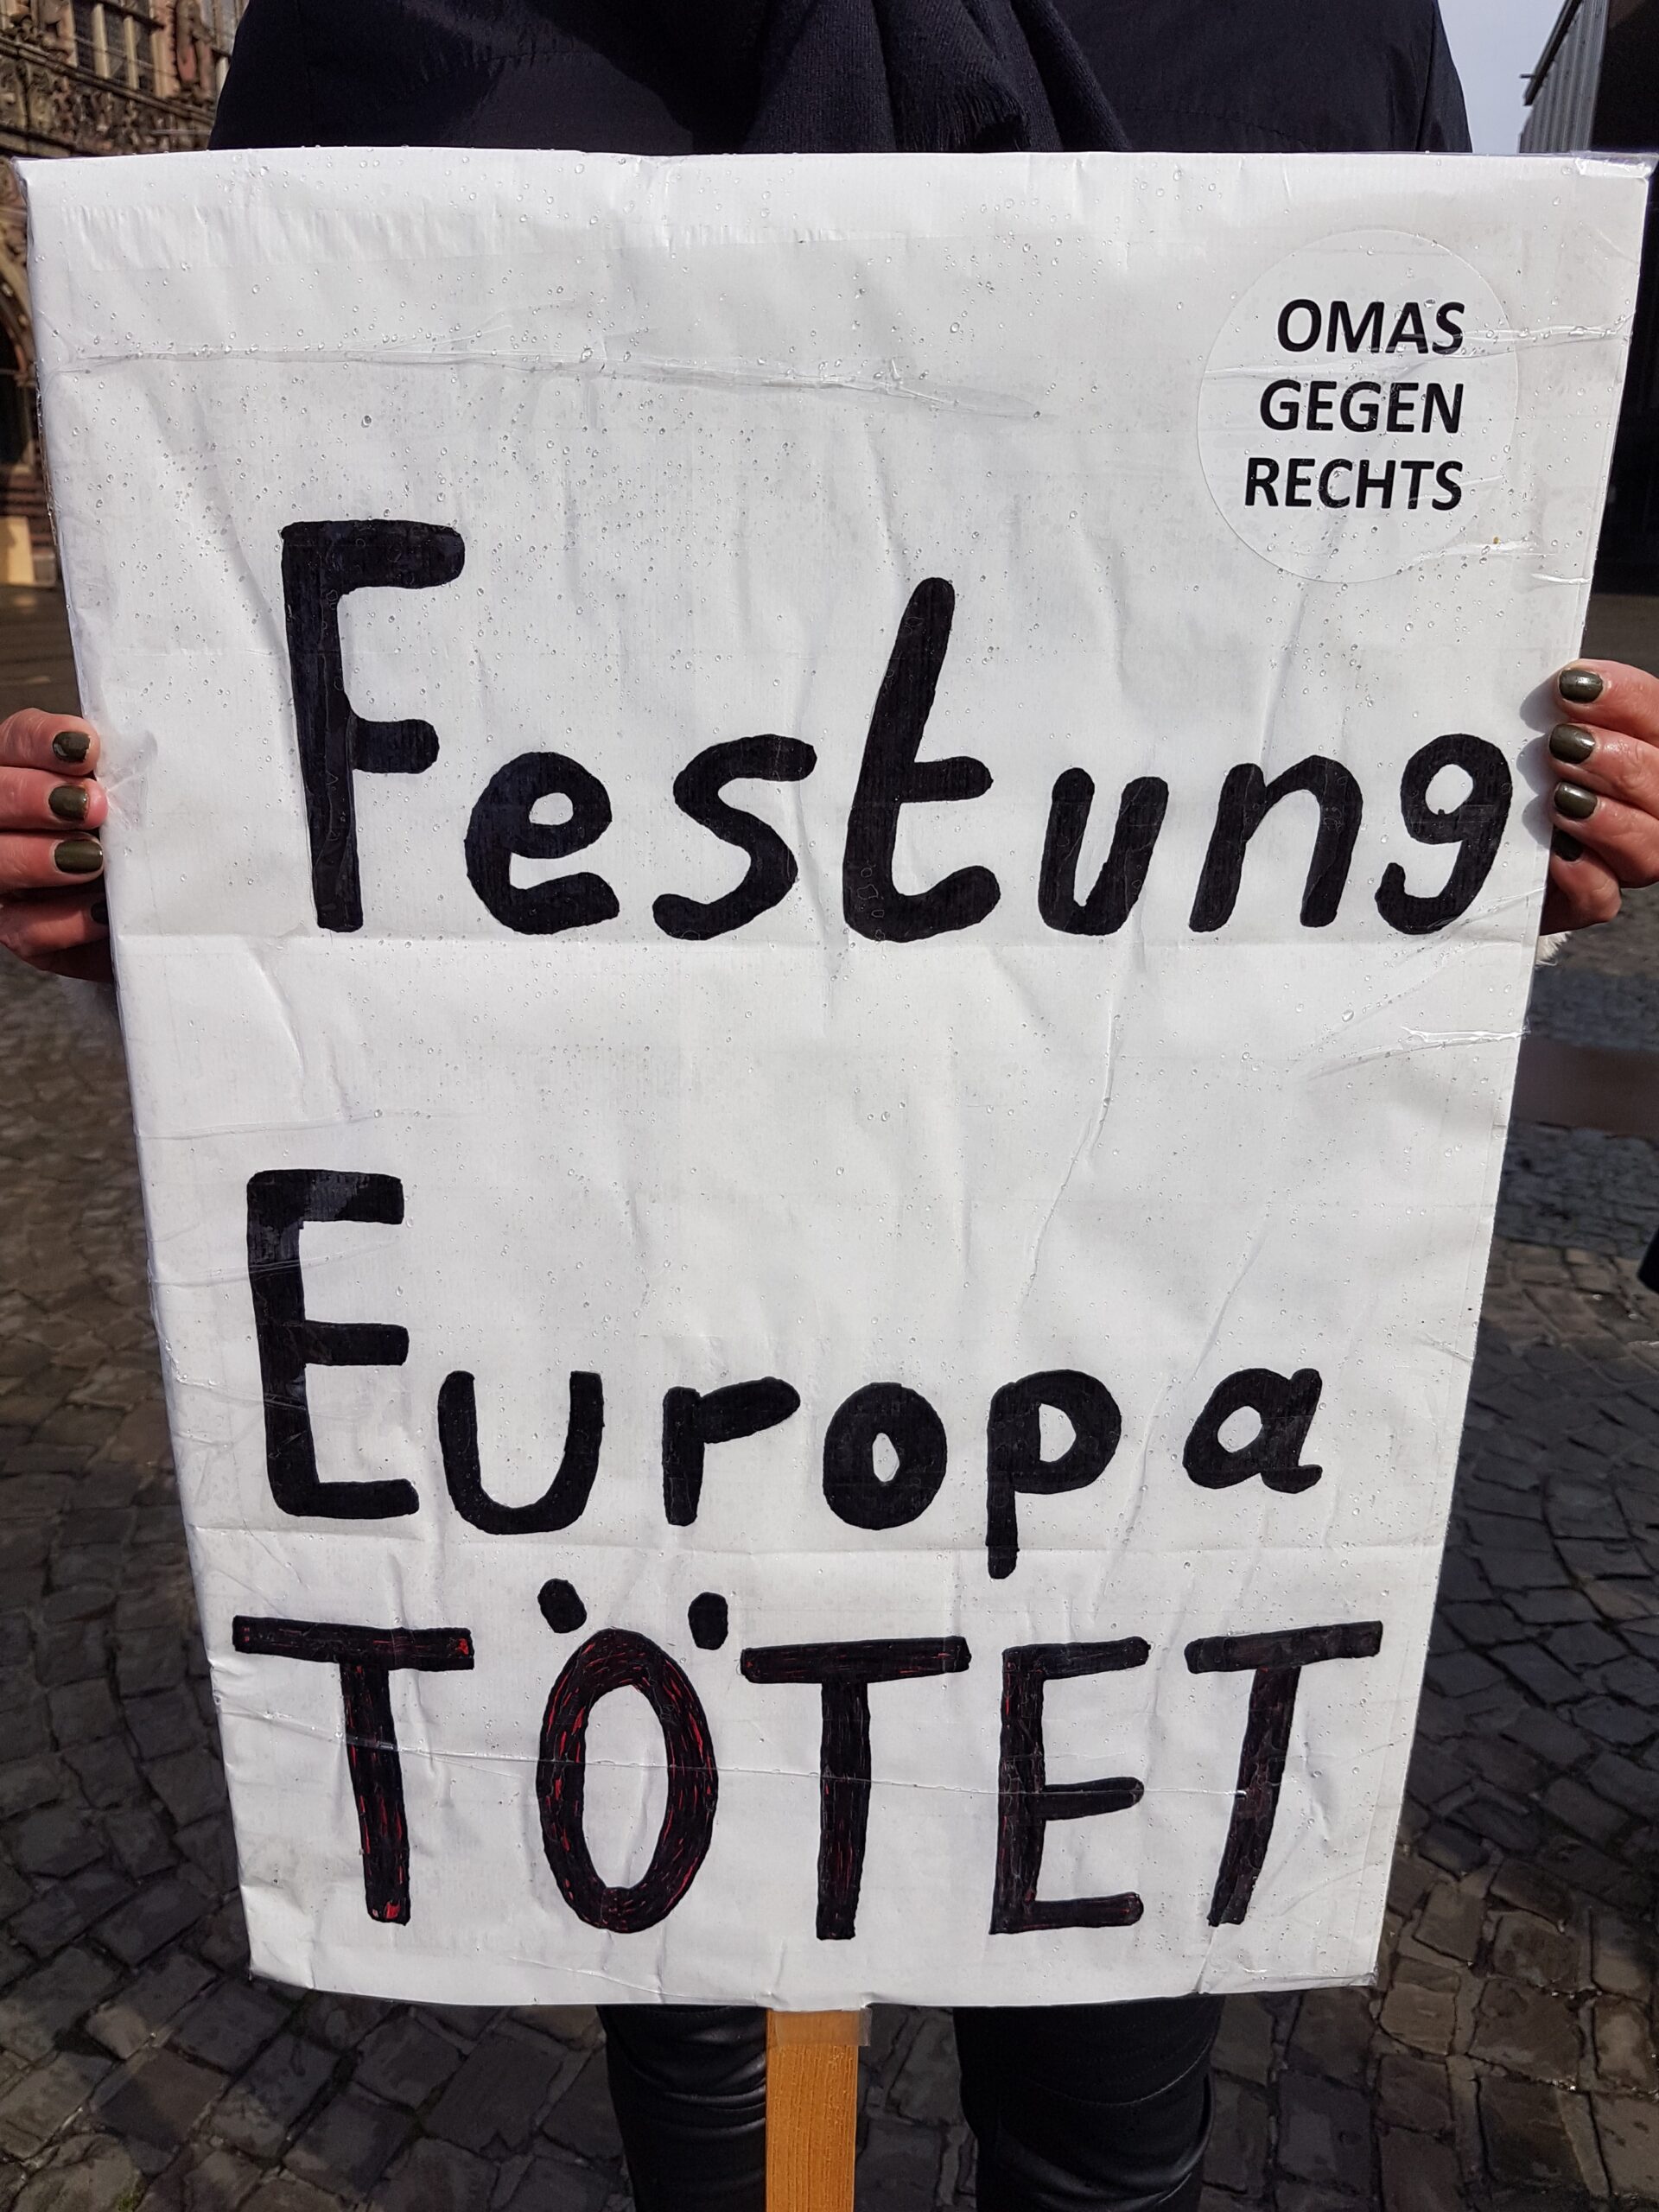 OMAS
GEGEN
RECHTS
Festung
Europa
TÖTET